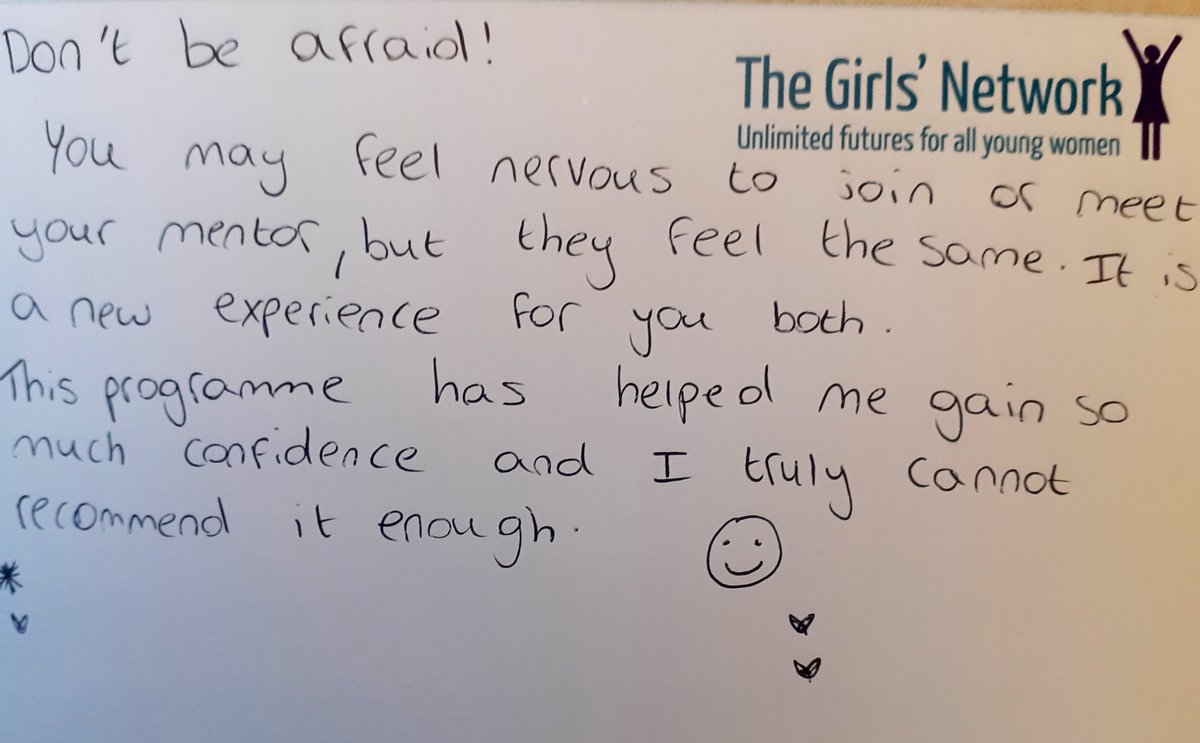 Don't be afraid!
The Girls' Network
Unlimited futures for all young women
You may feel nervous to join or meet
your mentor, but they feel the same. It is
a new experience for you both.
This programme has helped me gain so
much confidence and I truly cannot
recommend it enough.